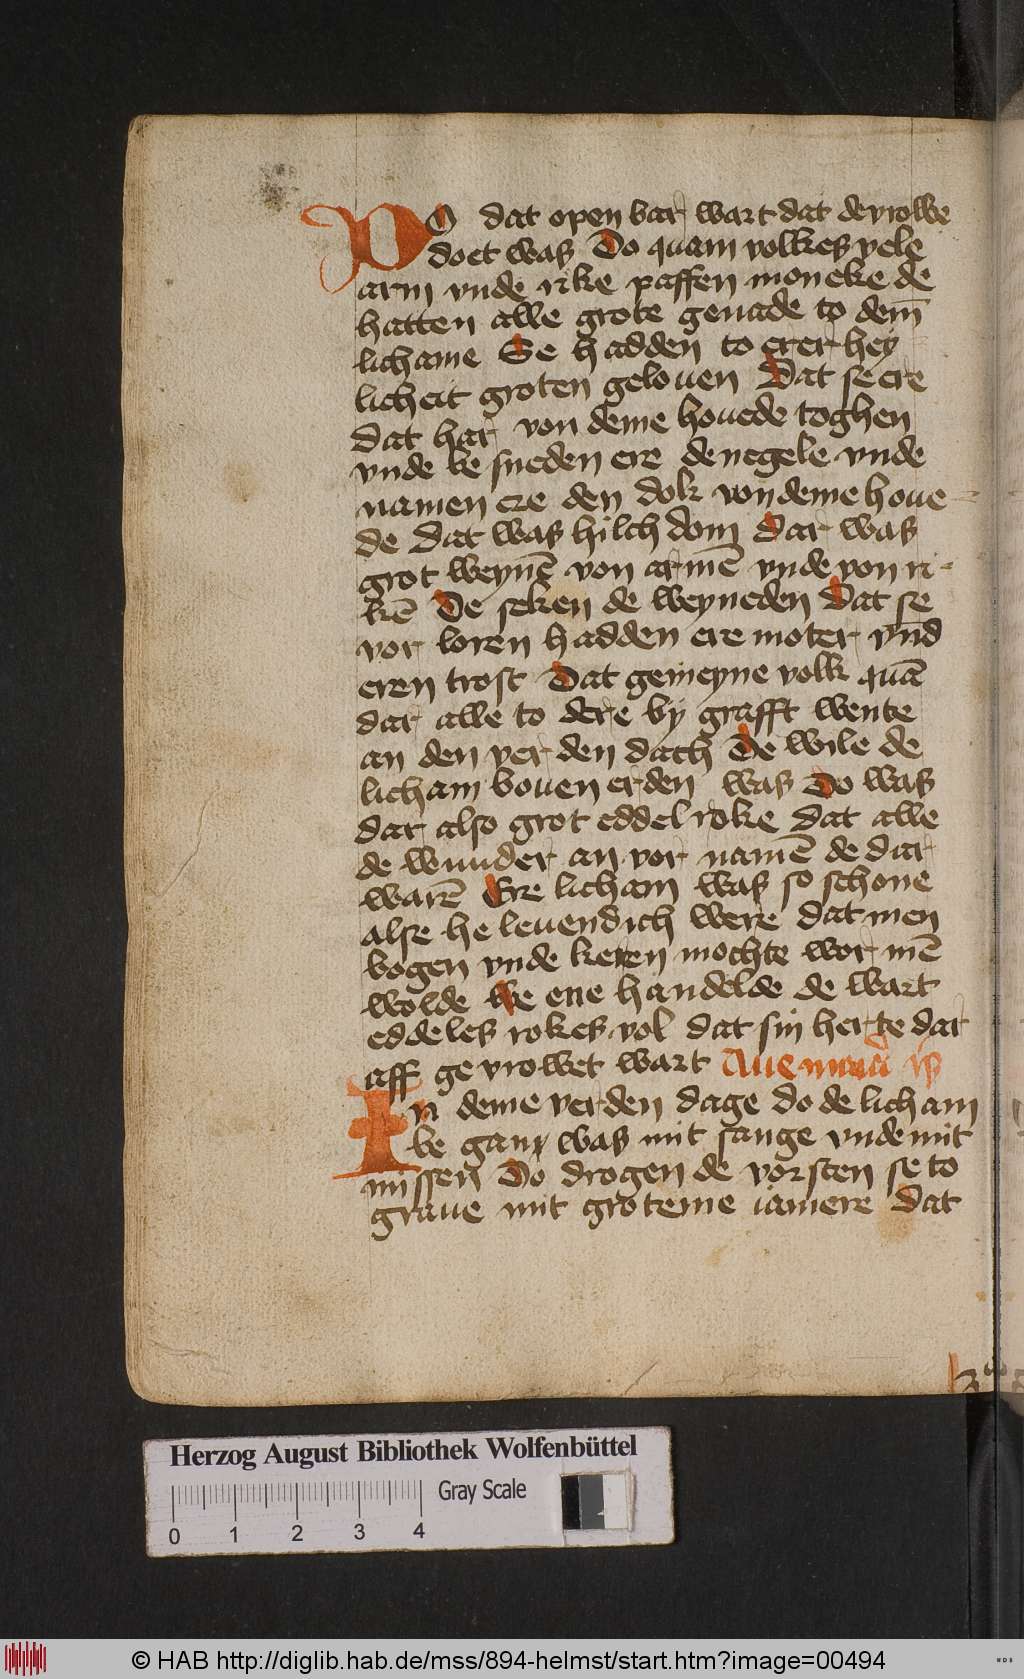 DO dat open bar wart dat de vrowe
doet was Do quam volkes vele
arm vnde rike paffen moneke de
hatten alle grote genade to dem̄
lichame Se hadden to erer hey
licheit groten gelouen Dat se ere
dat har von deme houede toghen
vnde be sneden ere de negele vnde
namen ere den dok von deme houe-
de dat was hilch dom Dar was
grot weynē von armē vnde von ri-
kē De seken de weyneden Dat se
vor loren hadden ere moter vn̄d
eren trost Dat gemeyne volk quā
dar alle to dere by grafft wente
an den verden dach De wile de
licham bouen erden was Do was
dar also grot eddel roke dat alle
de wunder an vor namē de dar
warē Ere licham was so schone
alse he leuendich were dat men
bogen vnde keren mochte wor mē
wolde We ene handelde de wart
eddeles rokes vol dat sin herte dar
aff ge vrowet wart Aue
In deme verden dage do de licham
be gan was mit sange vnde mit
missen Do drogen de vorsten se to
graue mit groteme iamere Dat
Herzog August Bibliothek Wolfenbüttel
Gray Scale
0 1 2 3 4
© HAB http://diglib.hab.de/mss/894-helmst/start.htm?image=00494